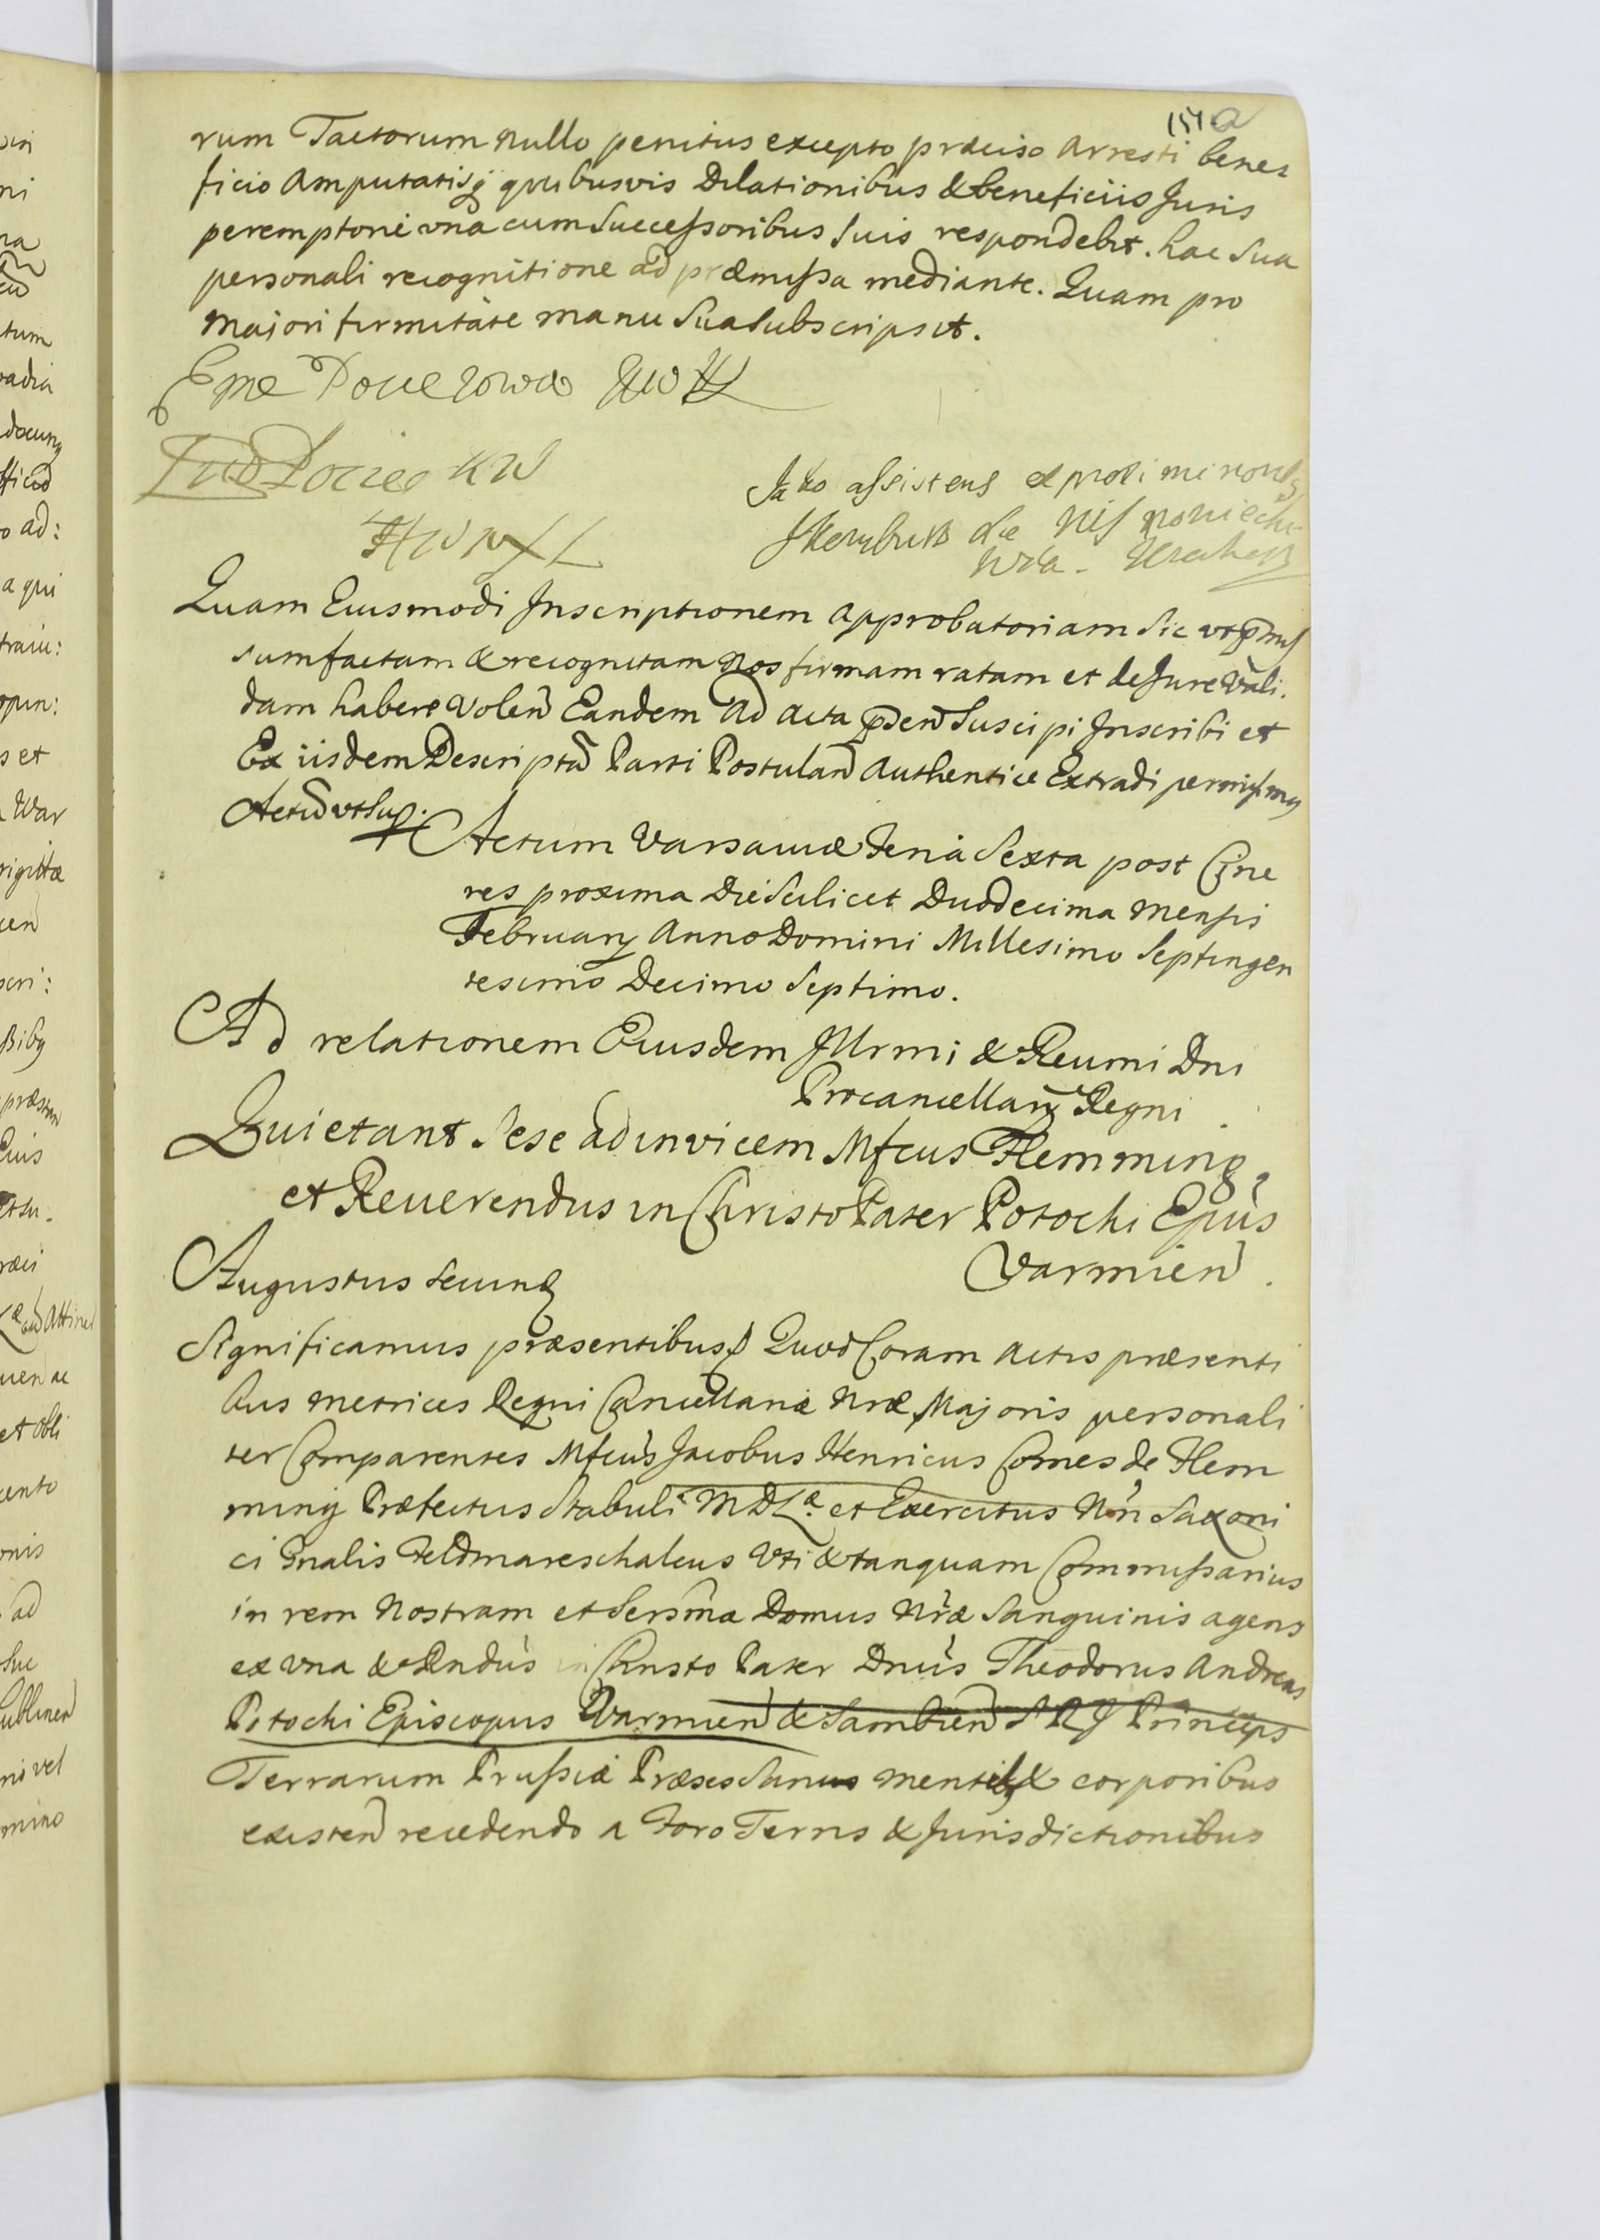 151 a
rum Factorum nullo penitus excepto præciso Arresti bene
ficio Amputatisq quibusvis Dilationibus & beneficiis Juris
peremptorie una cum Successoribus Suis respondebit. hac Sua
personali recognitione ad præmissa mediante. Quam pro
Majori firmitate manu Sua Subscripsit.
Eme Pocieiowa
Lud Pociey
Jako assistens
Quam Eiusmodi Inscriptionem Approbatoriam Sic ut
sum factam & recognitam Nos firmam ratam et de Jure Vali
dam habere Volen Eandem Ad Acta Suscipi Inscribi et
Ex iisdem Descriptu Parti Postulan Authentice Extradi permisimus
Actu ut Sup.
Actum Varsaviæ Feria Sexta post Cine
res proxima Die Scilicet Duodecima Mensis
February Anno Domini Millesimo Septingen
tesimo Decimo Septimo.
Ad relationem Eiusdem Illrmi & Reumi Dni
Procancellary Regni
Quietant Sese ad invicem Mfcus Flemming
et Reverendus in Christo Pater Potocki Epus
Varmien
Augustus Secund
Significamus præsentibus Quod Coram Actis præsenti
bus Metrices Regni Cancellariæ Nræ Majoris personali
ter Comparentes Mfcus Jacobus Henricus Comes de Flem
ming Præfectus Stabuli MDL et Exercitus Nri Saxoni
ci Gnalis Feldmareschalcus Uti & tanquam Commissarius
in rem Nostram et Sersmæ Domus Nræ Sanguinis agens
ex una & Rndus in Christo Pater Dnus Theodorus Andreas
Potocki Episcopus Varmien & Sambien S R J Princeps
Terrarum Prussiæ Præses Sanus mentibq & corporibus
existen recedendo a Foro Terris & Jurisdictionibus